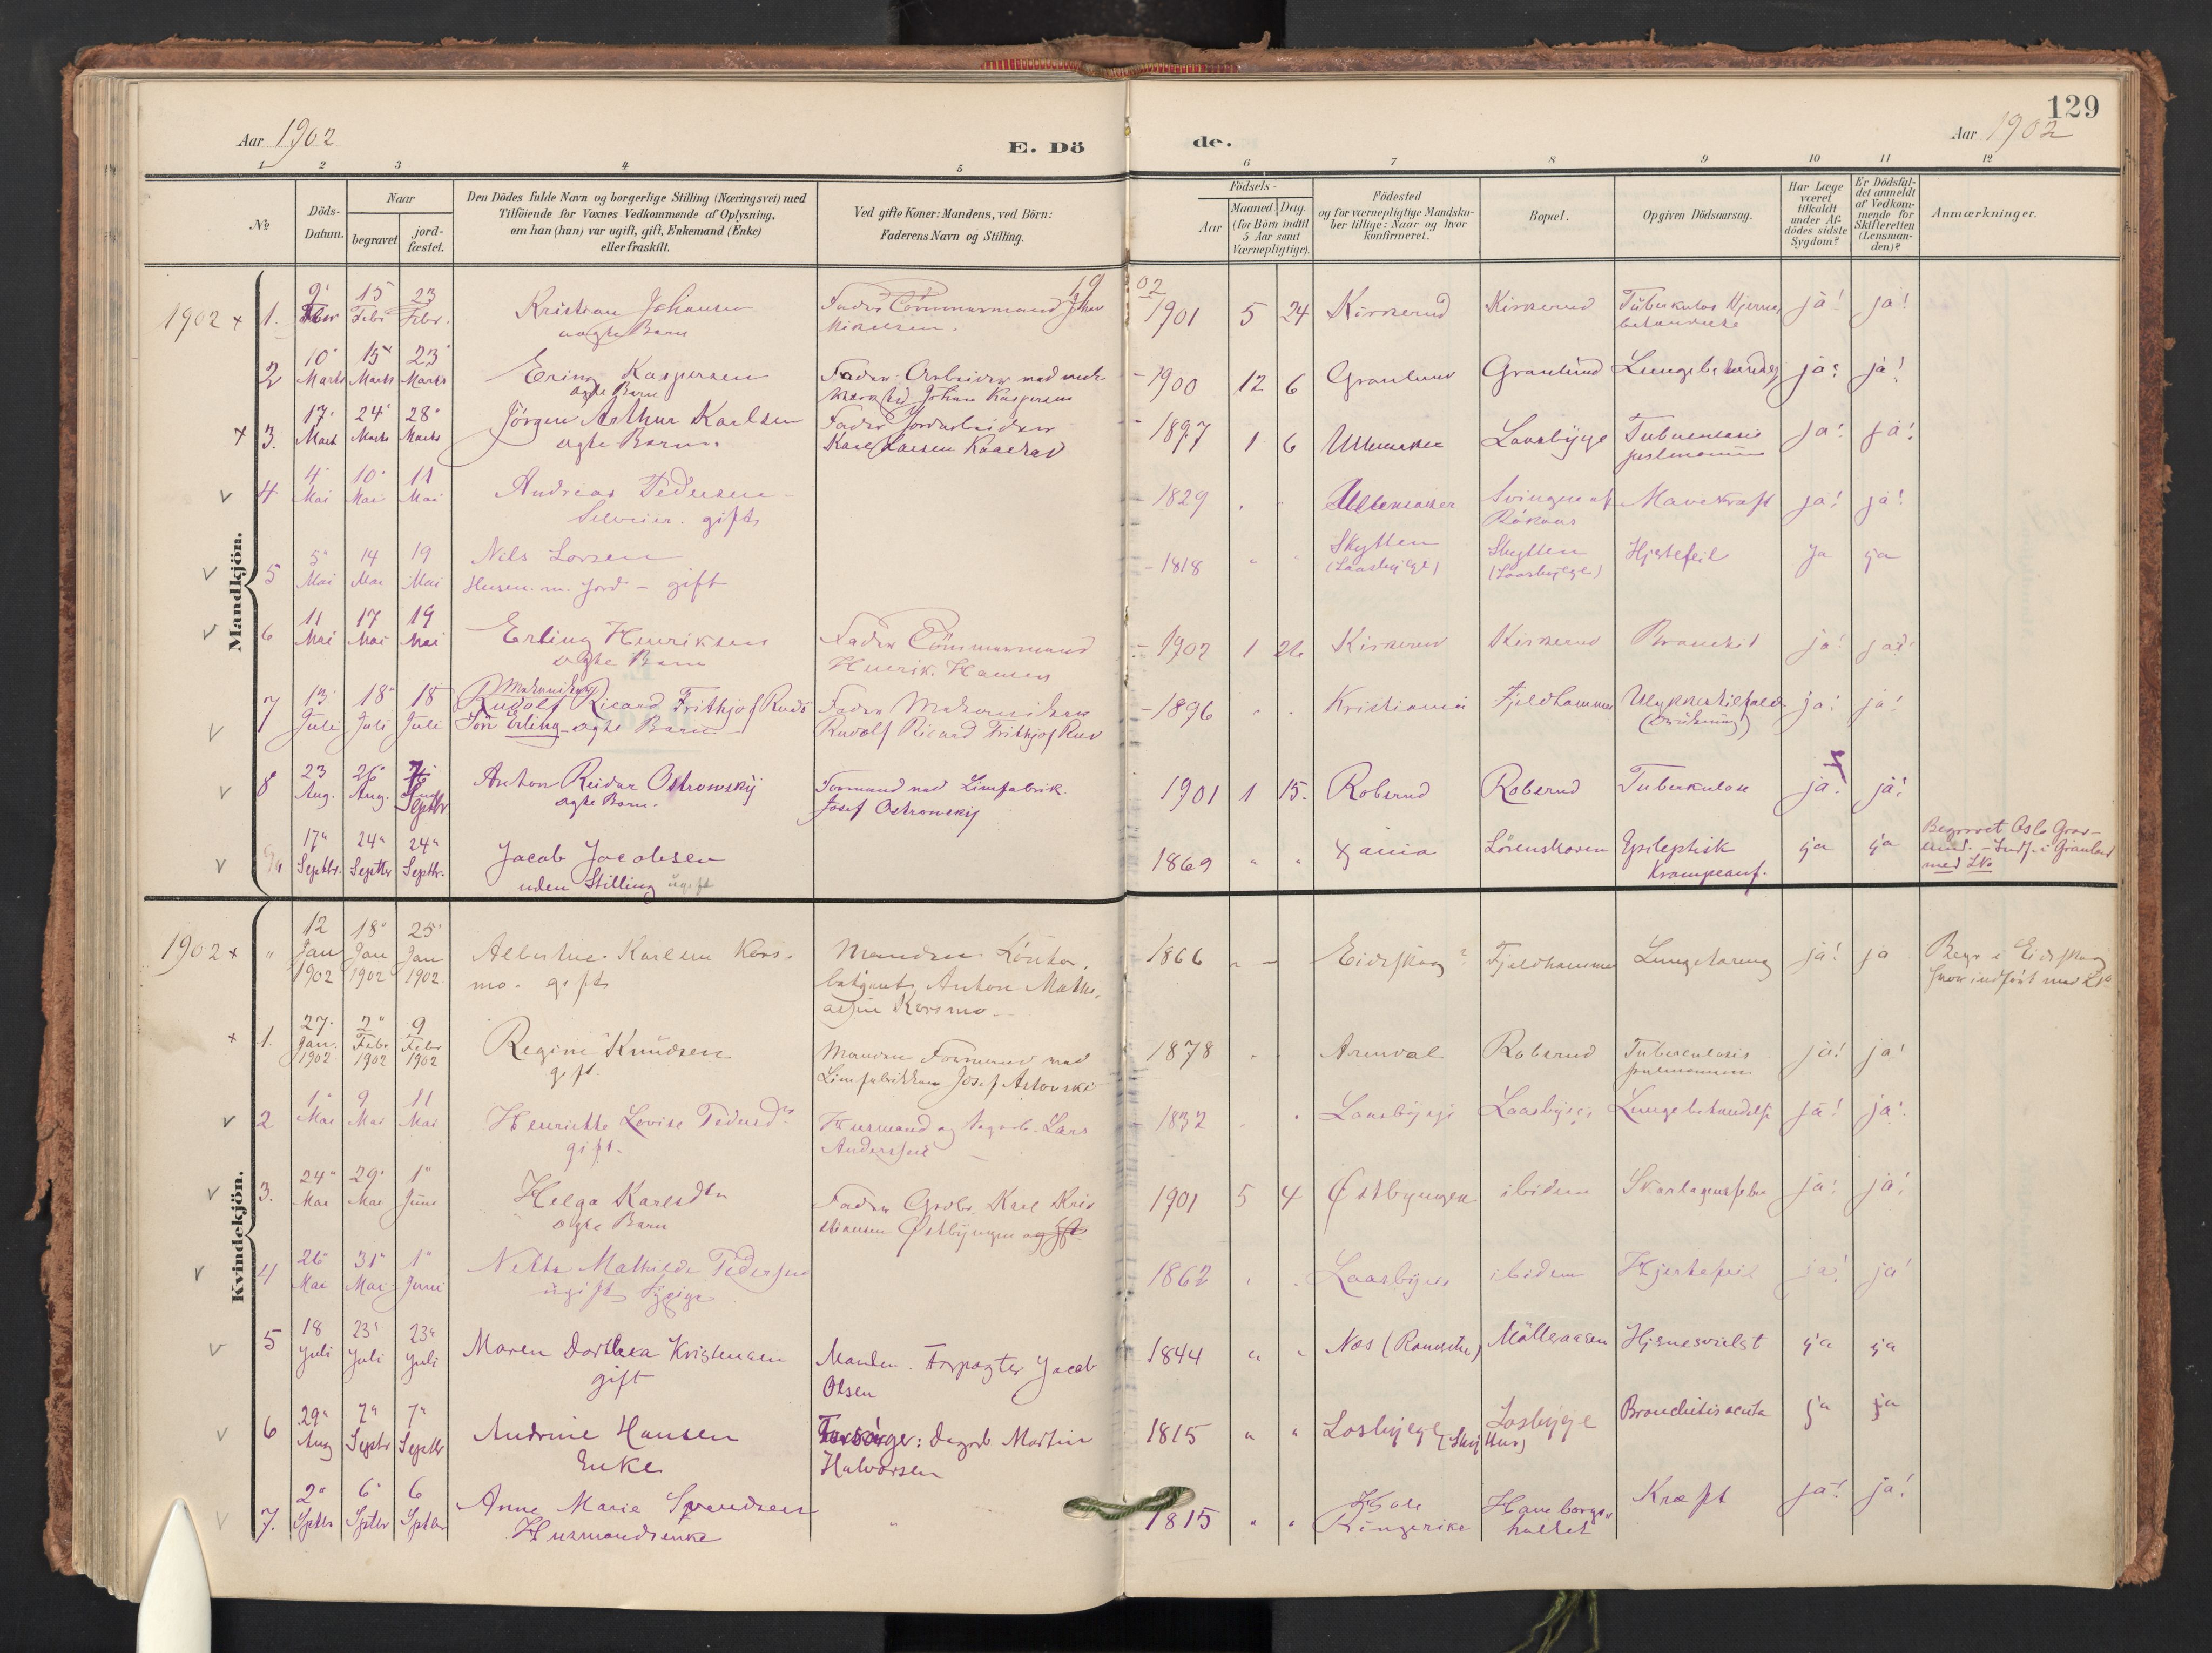 129
Aar 1902
E. Dö
de.
Aar 1902
1 2 3 4 5 6 7 8 9 10 11 12
No
Döds-Datum.
Naar
begravet.
jord-fæstet.
Den Dödes fulde Navn og borgerlige Stilling (Næringsvei) med
Tilföiende for Voxnes Vedkommende af Oplysning,
om han (hun) var ugift, gift, Enkemand (Enke)
eller fraskilt.
Ved gifte Koner: Mandens, ved Börn:
Faderens Navn og Stilling.
Födsels-
Aar
Maaned. Dag.
(for Börn indtil
5 Aar samt
Værnepligtige).
Födested
og for værnepligtige Mandska-
ber tillige: Naar og hvor
konfirmeret.
Bopæl.
Opgiven Dödsaarsag.
Har Læge
været
tilkaldt
under Af-
dödes sidste
Sygdom?
Er Dödsfal-
det anmeldt
af Vedkom-
mende for
Skifteretten
(Lensman-
den)?
Anmærkninger.
Mandkjön.
1902
19 02
1. 9 Febr 15 Febr 23 Febr. Kristian Johansen Fader Tömmermand Johan 1901 5 24 Kirkerud Kirkerud Tuberkulos Hjerne ja! ja!
ægte Barn Mikelsen. betændelse
2 10 Marts 15 Marts 23 Marts Erling Kaspersen Fader: Arbeider ved mek 1900 12 6 Granlund Granlund Lungebetændelse ja! ja!
ægte Barn Værksted Johan Kaspersen
3. 17 Marts 24 Marts 28 Marts Jörgen Arthur Karlsen Fader Jordarbeider 1897 1 6 Ullensaker Laasbÿge Tuberculosis ja! ja!
ægte Barn Karl Larsen pulmonum
4 4 Mai 10 Mai 11 Mai Andreas Pedersen 1829 Ullensaker Svingen af Mavekræft ja! ja!
Selveier. gift Rökaas
5 5 Mai 14 Mai 19 Mai Nils Larsen 1818 Skytten Skytten Hjertefeil ja ja
Husm. m. Jord - gift (Laasbÿge) (Laasbÿge)
6 11 Mai 17 Mai 19 Mai Erling Henriksen Fader Tömmermand 1902 1 26 Kirkerud Kirkerud Bronchit ja! ja!
ægte Barn Henrik Hansen
7 13 Juli 18 Juli 18 Juli Mekanikeren
Rudolf Ricard Frithjof Ruds Fader Mekanikeren 1896 Kristiania Fjeldhammer Ulykkestilfælde ja! ja!
Sön Erling - ægte Barn Rudolf Ricard Frithjof Rud (Drukning)
8 23 Aug. 26 Aug. 7 Septbr Anton Reidar Ostrowskÿ Formand ved Limfabrik. 1901 1 15. Robsrud Robsrud Tuberkulose ja! ja!
ægte Barn. Josef Ostrowskÿ
17 Septbr. 24 Septbr 24 Septbr. Jacob Jacobsen 1869 Lörenskoven Epileptisk ja ja Begravet Oslo Grav-
uden Stilling ugift Krampeanf. lund. - Indf. i Grønland
med No
Kvindekjön.
1902
12 Jan 1902 18 Jan 1902 25 Jan 1902. Albertine Karlsen Kors- Manden 1866 Eidskog? Fjeldhammer Lungetæring ja! ja Begr i Eidskog
mo. gift betjent Anton Mathi- hvor indfört med No
Korsmo.
1. 27 Jan. 1902 2 Febr 1902 9 Febr 1902 Regine Knudsen Manden Formand ved 1878 Robsrud Tuberculosis ja! ja!
gift. Limfabrikken Josef pulmonum
2 1 Mai 9 Mai 11 Mai Henriette Lovise Pedersd. Husmand og Lars 1832 Laasbÿge Laasbÿge Lungebetændelse ja! ja!
gift. Andersen
3. 24 Mai 29 Mai 1 Juni Helga Karlsdtr Fader Karl Kris 1901 5 4 Östbyengen ibidem Skarlagensfeber ja! ja!
ægte Barn tiansen Östbÿengen
4 26 Mai 31 Mai 1 Juni Mathilde Pedersen 1862 Laasbÿge ibidem Hjertefeil ja! ja!
ugift Pige
5 18 Juli 23 Juli 23 Juli Maren Dorthea Kristensen Manden. Forpagter Jacob 1844 Næs (Romerike) Mölleraasen ja ja
gift Olsen
6 29 Aug 7 Septbr 7 Septbr Andrine Hansen Forsörger: Dagarb Martin 1815 Losbÿge Losbÿge Bronchitis acuta ja ja
Enke Halvorsen
7. 2 Sptbr 6 Sptbr 6 Sptbr Anne Marie Svendsen 1815 Hole Haneborgs- Kræft ja! ja!
Husmandsenke Ringerike